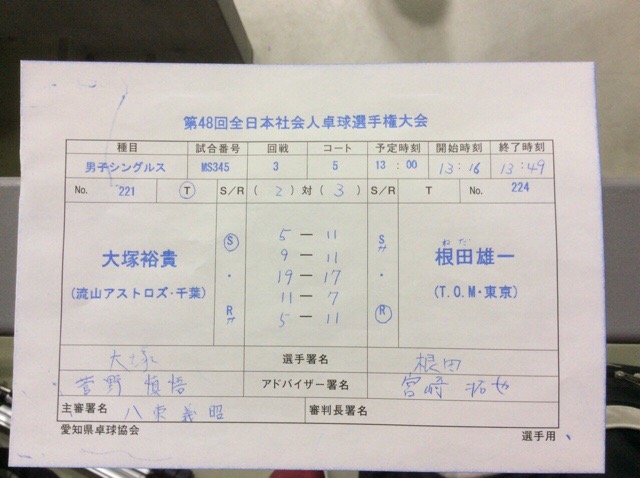 第48回全日本社会人卓球選手権大会
種目 試合番号 回戦 コート 予定時刻 開始時刻 終了時刻
男子シングルス MS345 3 5 13:00 13:16 13:49
No. 221 T S/R (2) 対 (3) S/R T No. 224
S 5 ー 11 S
9 ー 11 ねだ
大塚裕貴 19 ー 17 根田雄一
(流山アストロズ・千葉) 11 ー 7 (T.O.M・東京)
R 5 ー 11 R
大塚 選手署名 根田
菅野 慎悟 アドバイザー署名 宮崎 拓也
主審署名 八束義昭 審判長署名
愛知県卓球協会 選手用